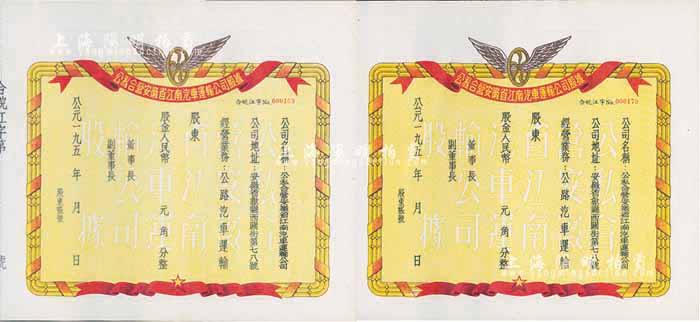 上海阳明拍卖
公私合營安徽省江南汽車運輸公司股據
合皖江字No. 000169
公司名稱：公私合營安徽省江南汽車運輸公司
公司地址：安徽省歙縣西關街第七八號
經營業務：公路汽車運輸
股東
股金人民幣 元 角 分整
董事長
副董事長
公元一九五 年 月 日
股東賬號
合皖江字第 號
上海阳明拍卖
公私合營安徽省江南汽車運輸公司股據
合皖江字No. 000170
公司名稱：公私合營安徽省江南汽車運輸公司
公司地址：安徽省歙縣西關街第七八號
經營業務：公路汽車運輸
股東
股金人民幣 元 角 分整
董事長
副董事長
公元一九五 年 月 日
股東賬號